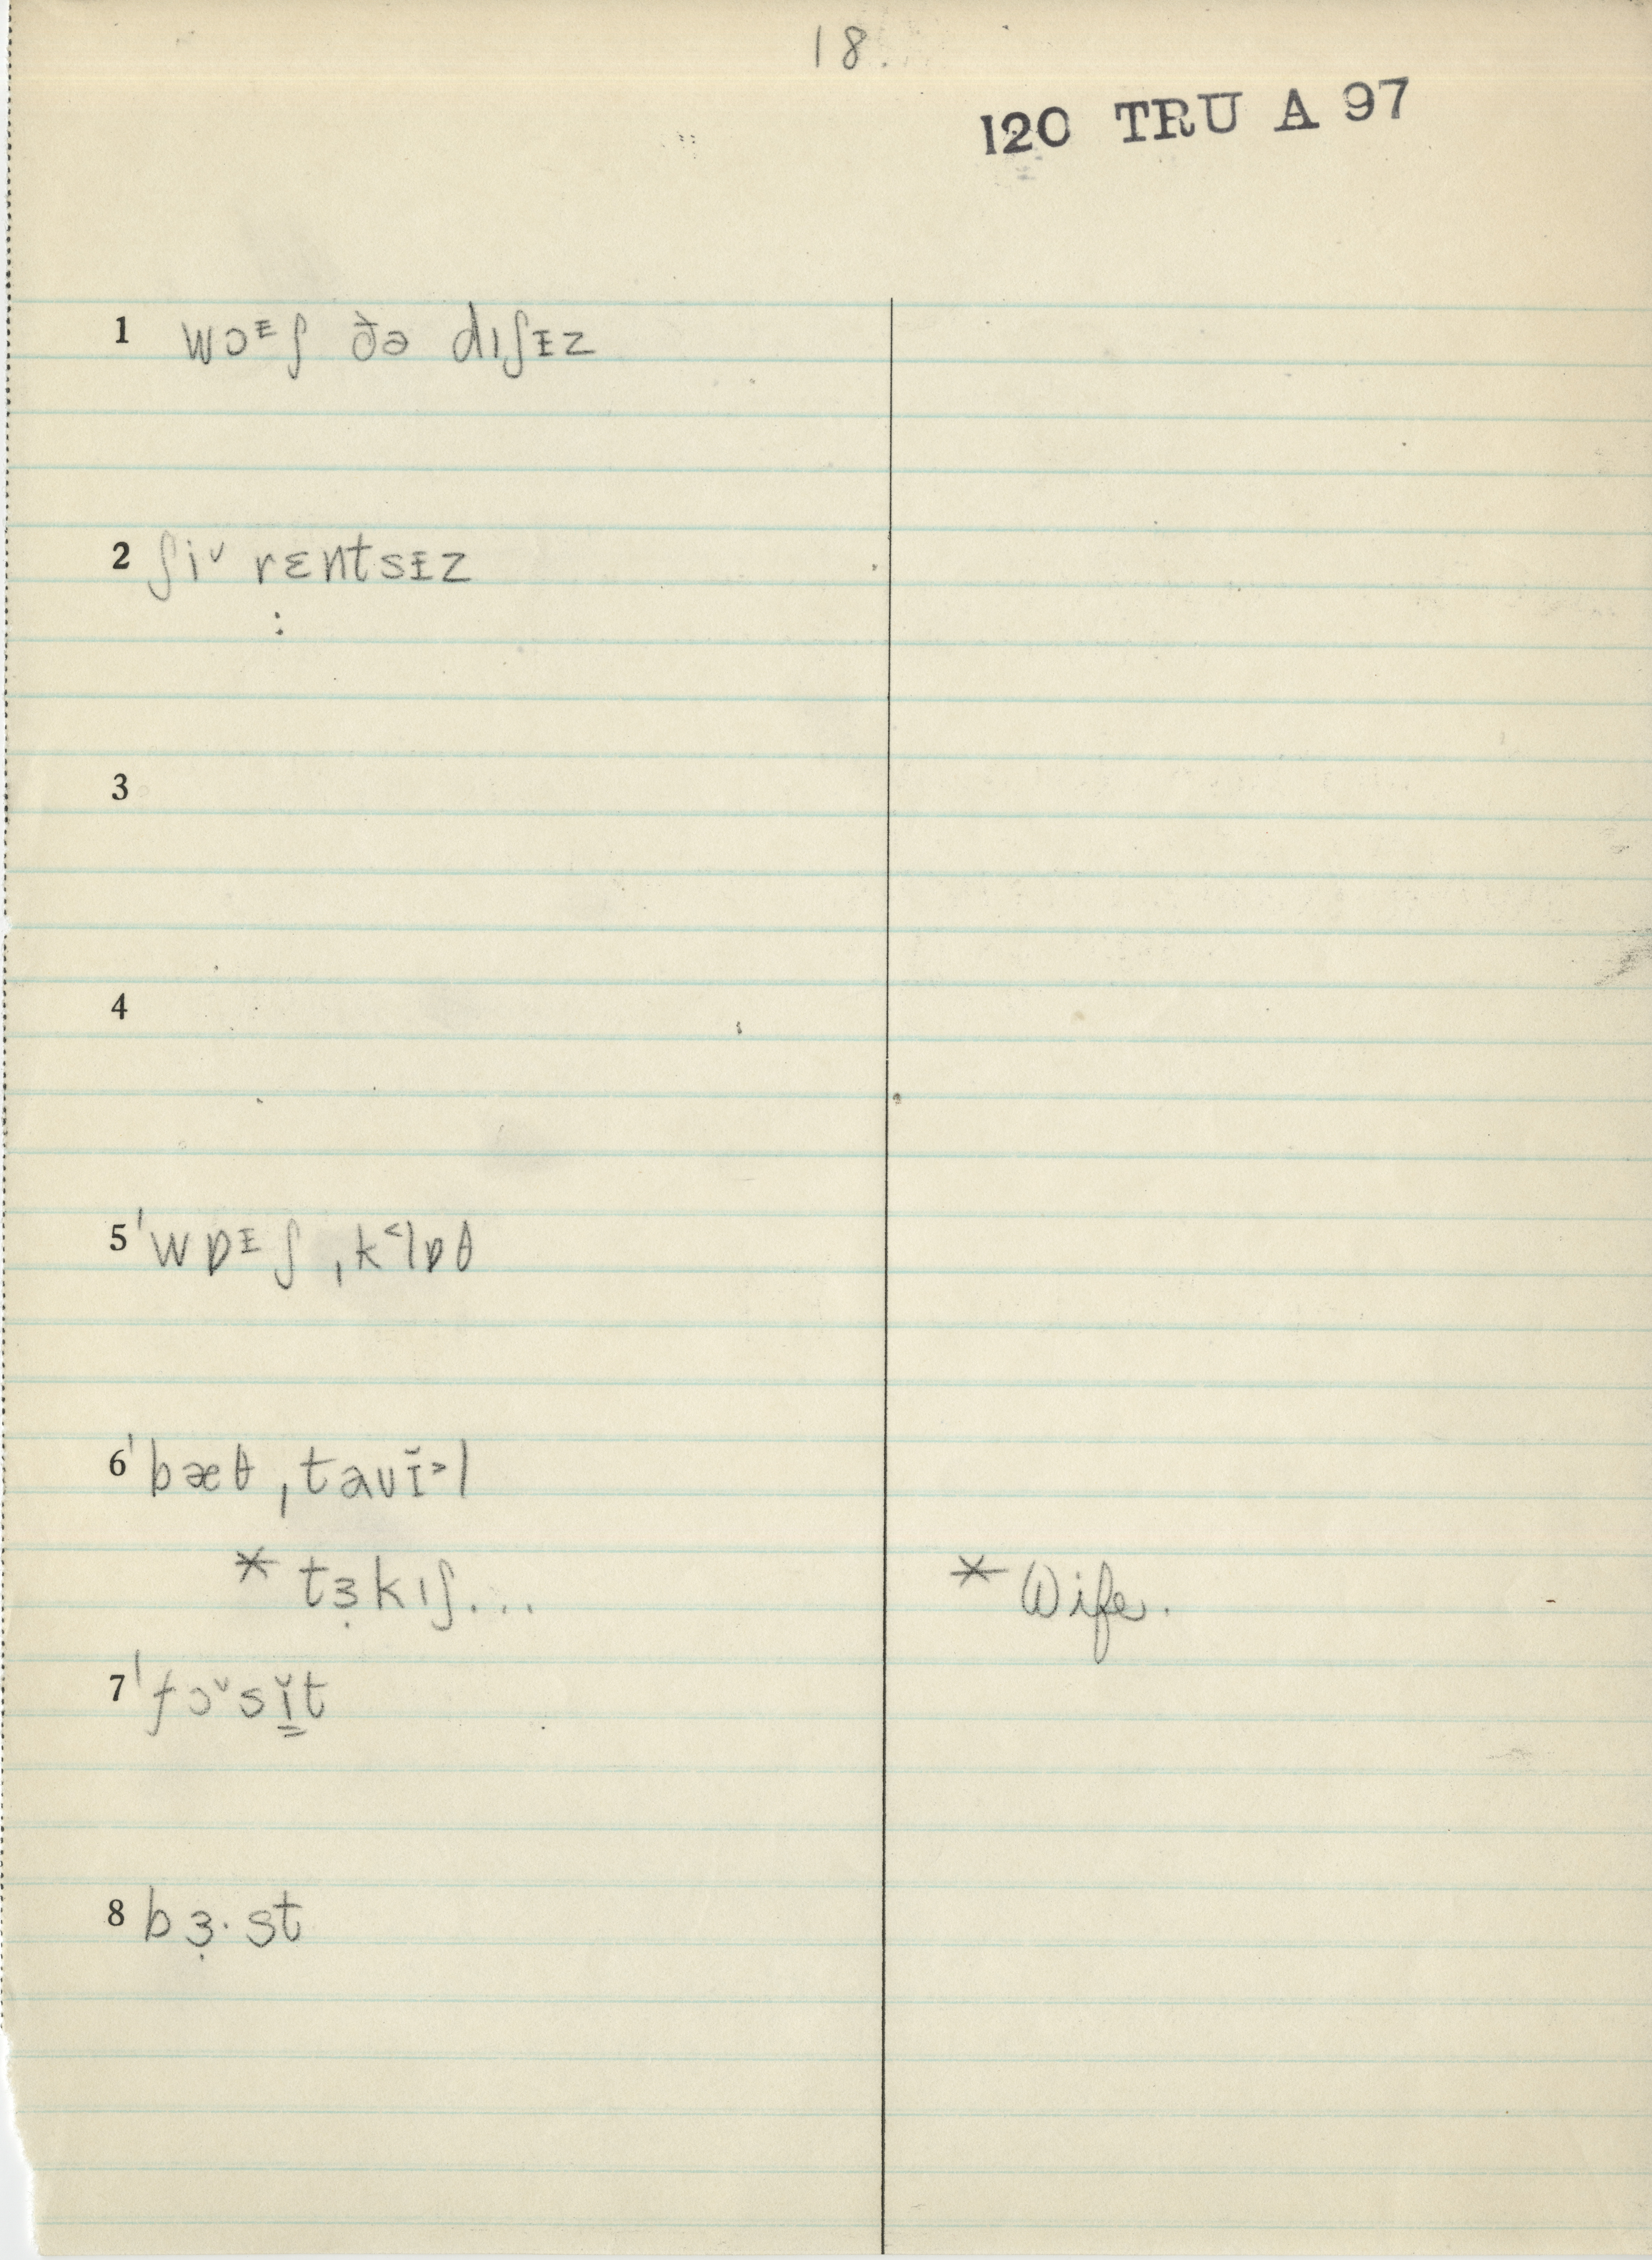 18.
120 TRU A 97
1 wɔᵻʃ ðə dɪʃᵻz
2 ʃiˇ rɛntsᵻz
3
4
5 ˈwɒᵻʃ ˌk˂lɒθ
6 ˈbæθ ˌtaʊᵻ̆˃l
* tɜ̣kɪʃ... * Wife.
7 ˈfɔˇsɪ̳̆t
8 bɜ̣·st